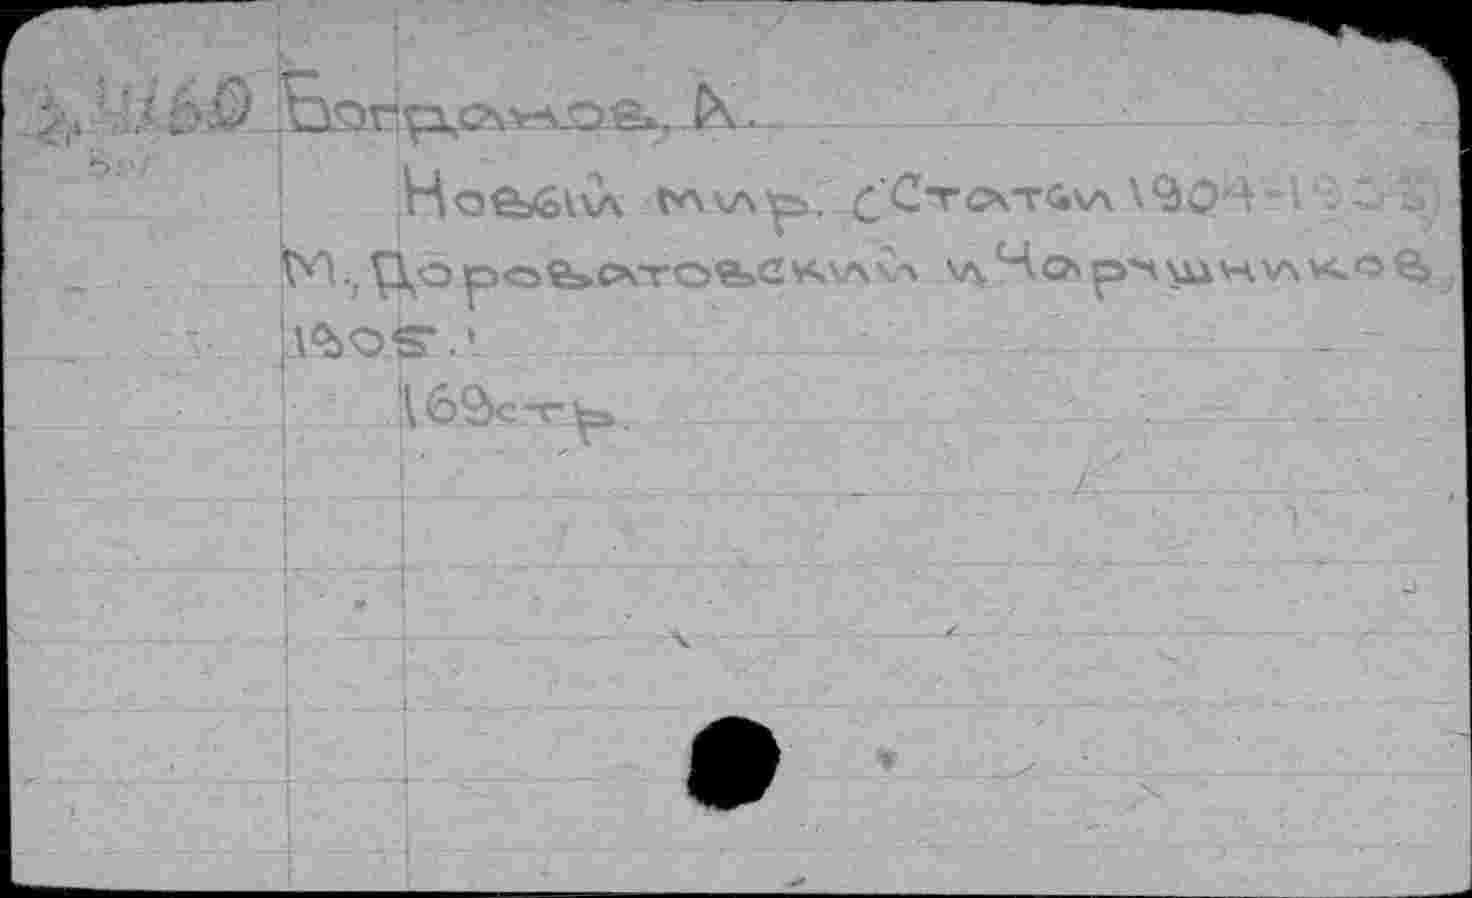 Богданов, А.
Новый мир. (Статьи 1904-1905)
М., Дороватовский и Чарушников,
1905.
169стр.